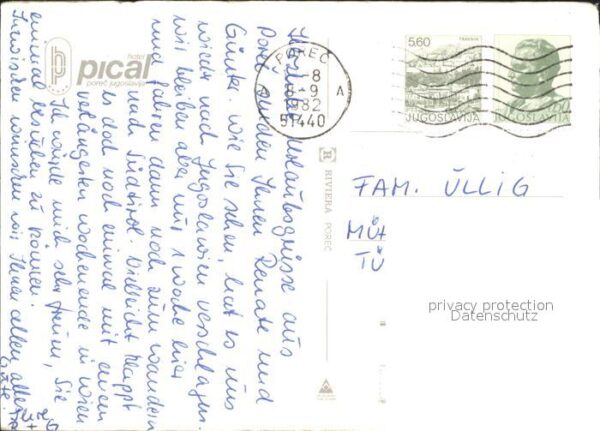 hotel
pical
poreč jugoslavija
Herzliche Urlaubsgrüsse aus
Poreč senden Ihnen Renate und
Günter. Wie Sie sehen, hat es uns
wieder nach Jugoslawien verschlagen.
Wir bleiben aber nur 1 Woche hier
und fahren dann noch zum Wandern
nach Südtirol. Vielleicht klappt
es doch noch einmal mit einem
verlängerten Wochenende in Wien
Ich würde mich sehr freuen, Sie
einmal besuchen zu können.
Inzwischen wünschen wir Ihnen allen alles
Gute.
POREČ
8
8-9
1982
A
51440
5,60
TRAVNIK
JUGOSLAVIJA
JUGOSLAVIJA
RIVIERA POREČ
FAM. ÜLLIG
MÜ
TÜ
privacy protection
Datenschutz